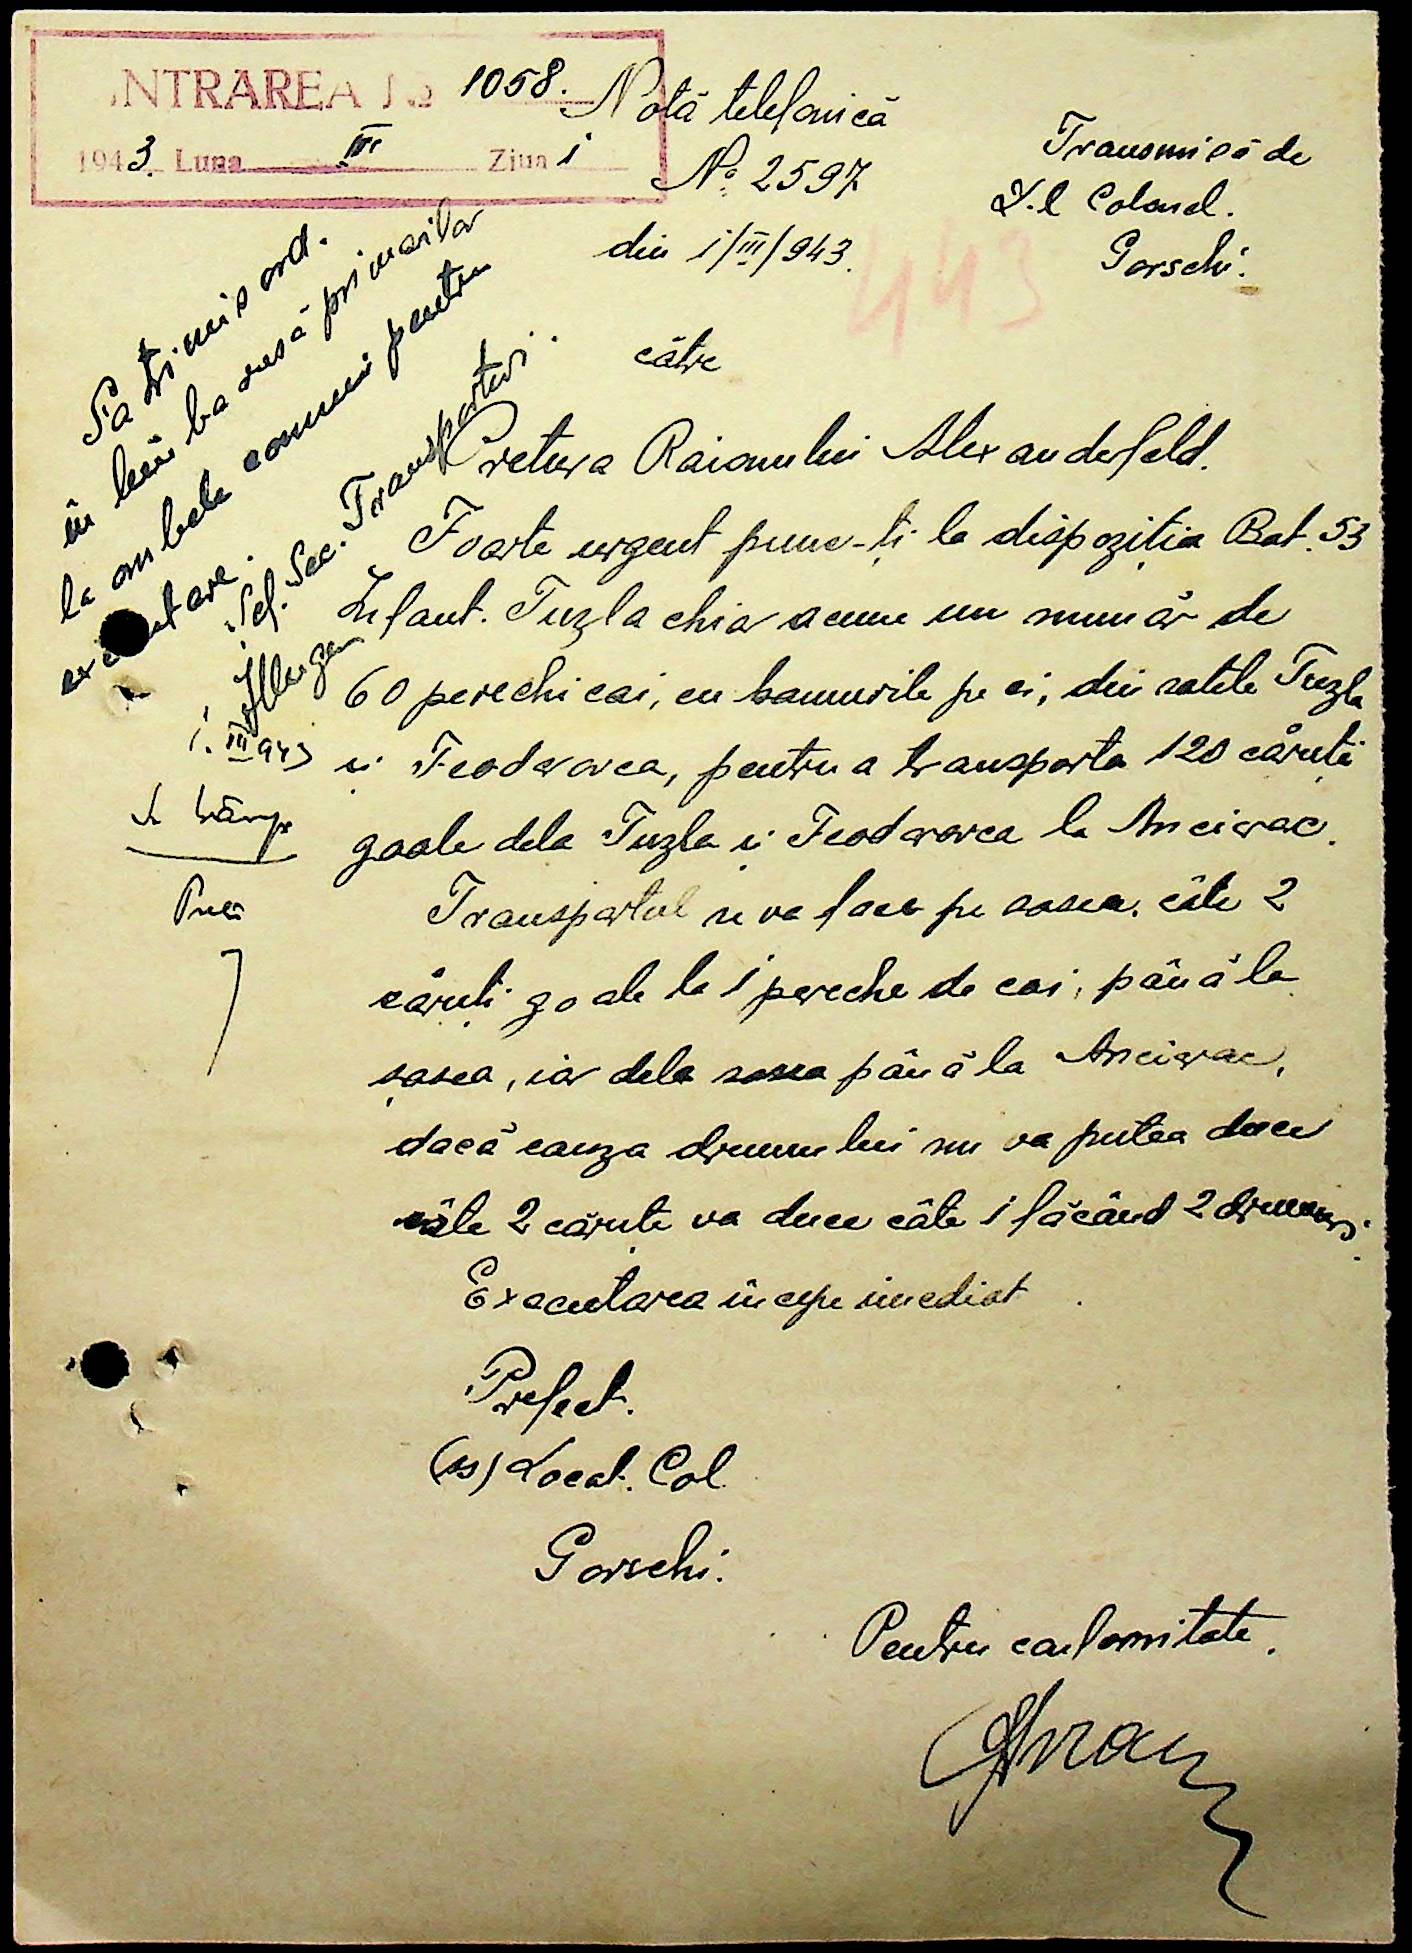 INTRAREA No 1058.
1943. Luna III Ziua 1
Notă telefonică
No. 2597
din 1/III/943.
Transmisă de
D-l Colonel.
Gorschi.
443
S'a trimis ord.
în limba rusă primarilor
la ambele comuni pentru
executare.
Șef. Sec. Transporturi.
1. III 943
către
Pretura Raionului Alexanderfeld.
Foarte urgent pune-ți la dispoziția Bat. 53
Infant. Tuzla chiar acum un număr de
60 perechi cai, cu hamurile pe ei, din satele Tuzla
și Feoderovca, pentru a transporta 120 căruți
goale dela Tuzla și Feoderovca la Anciocrac.
Transportul se va face pe șosea, câte 2
căruți goale la 1 pereche de cai, până la
șosea, iar dela șosea până la Anciocrac,
dacă cauza drumului nu va putea duce
câte 2 căruțe va duce câte 1 făcând 2 drumuri.
Executarea începe imediat.
Prefect.
(ss) Locot. Col.
Gorschi.
Pentru conformitate.